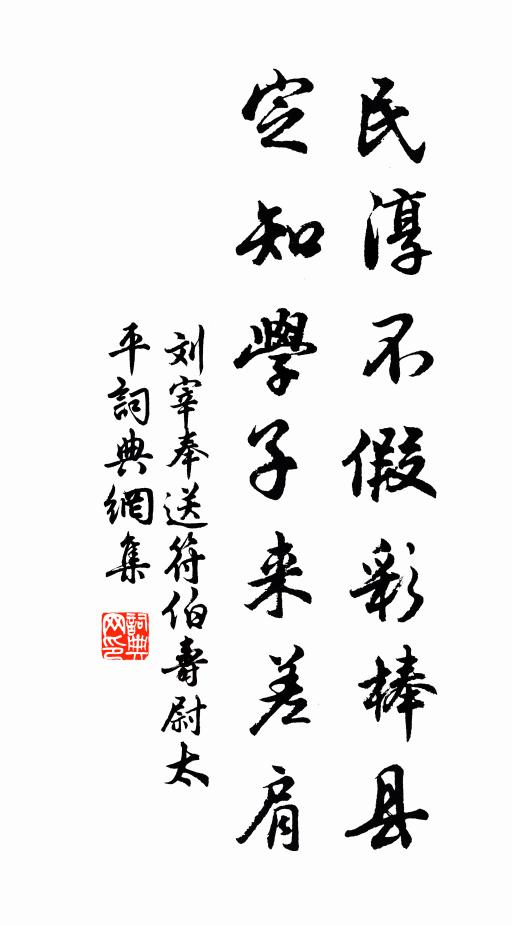 民淳不假彩棒县
定知學子来差肩
刘宰奉送符伯壽尉太
平詞典網集
詞典
网印